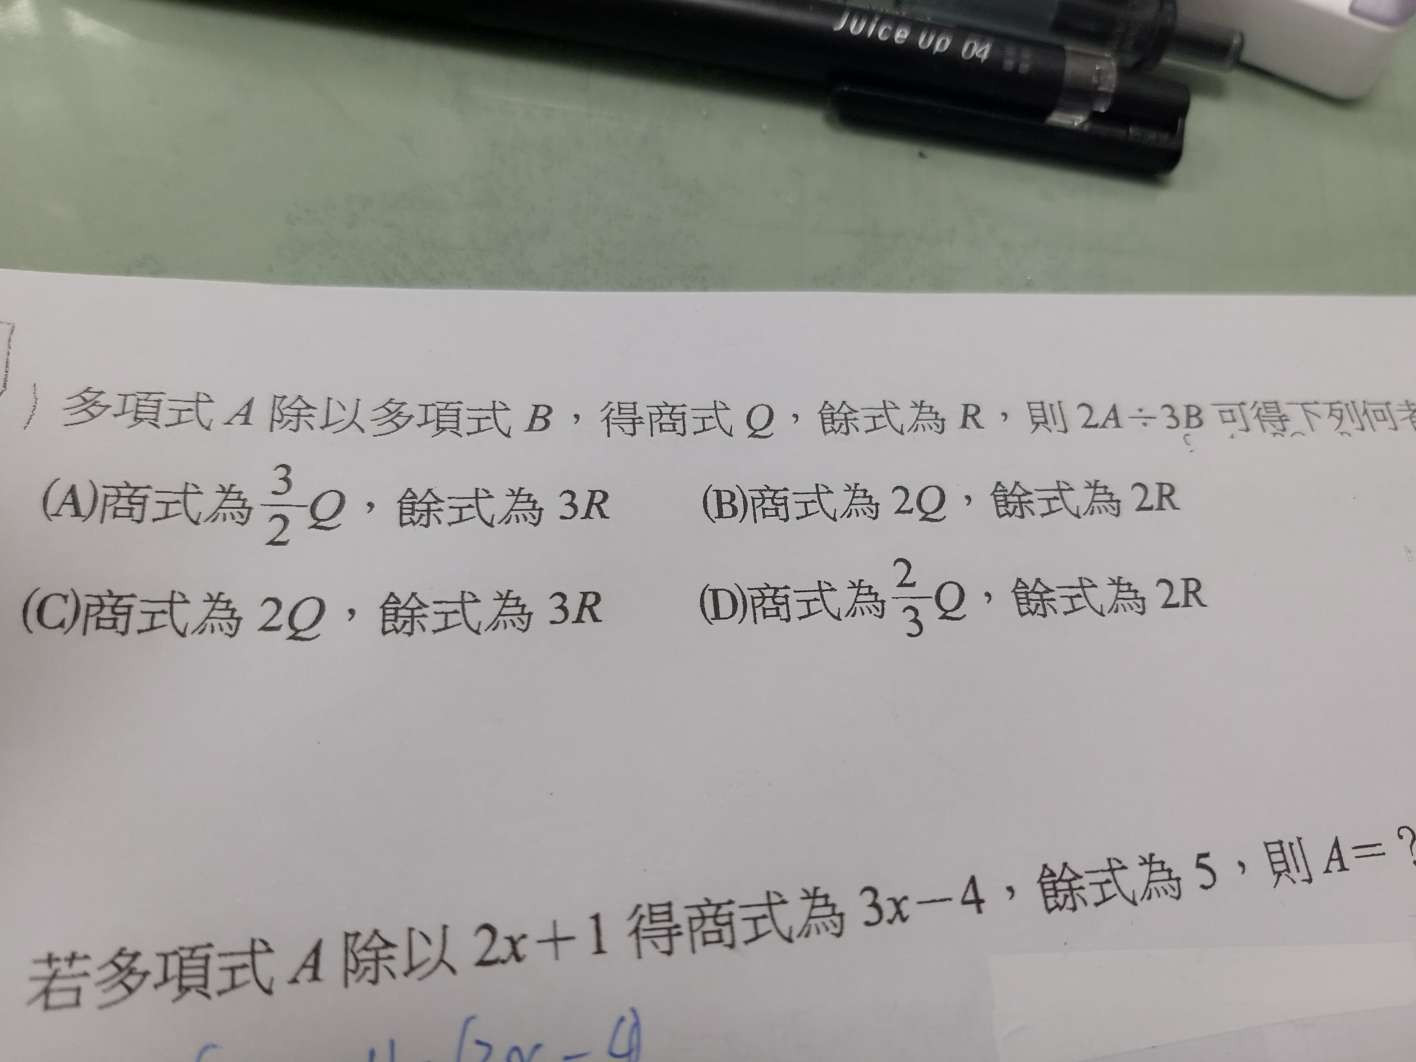 Juice up 04
)多項式 A 除以多項式 B,得商式 Q,餘式為 R,則 2A÷3B 可得下列何者
(A)商式為 3/2 Q,餘式為 3R (B)商式為 2Q,餘式為 2R
(C)商式為 2Q,餘式為 3R (D)商式為 2/3 Q,餘式為 2R
若多項式 A 除以 2x+1 得商式為 3x-4,餘式為 5,則 A=?